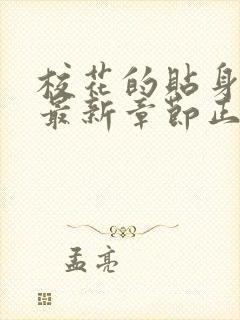 校花的贴身
最新章节正
孟亮